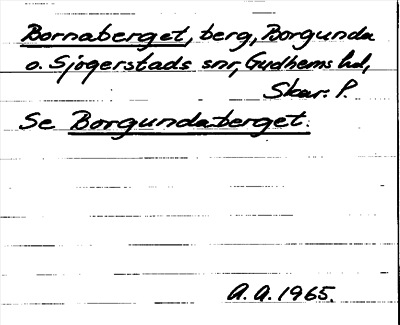 Bornaberget, berg, Borgunda
o. Sjogerstads snr, Gudhems hd,
Skar. P.
Se Borgundaberget.
A. A. 1965.